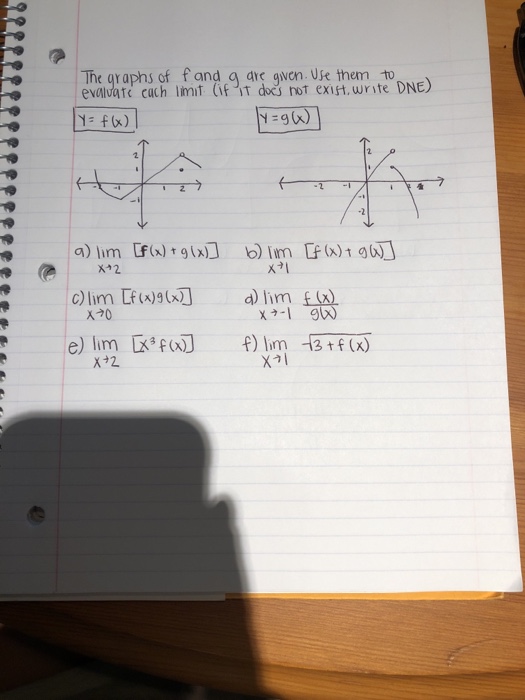 The graphs of f and g are given. Use them to
evaluate each limit (if it does not exist, write DNE)
y = f(x) y = g(x)
2 2
1
-2 -1 1 2 -2 -1 1 2
-1 -1
-2
a) lim [f(x) + g(x)] b) lim [f(x) + g(x)]
x→2 x→1
c) lim [f(x)g(x)] d) lim f(x)
x→0 x→-1 g(x)
e) lim [x³ f(x)] f) lim √3 + f(x)
x→2 x→1